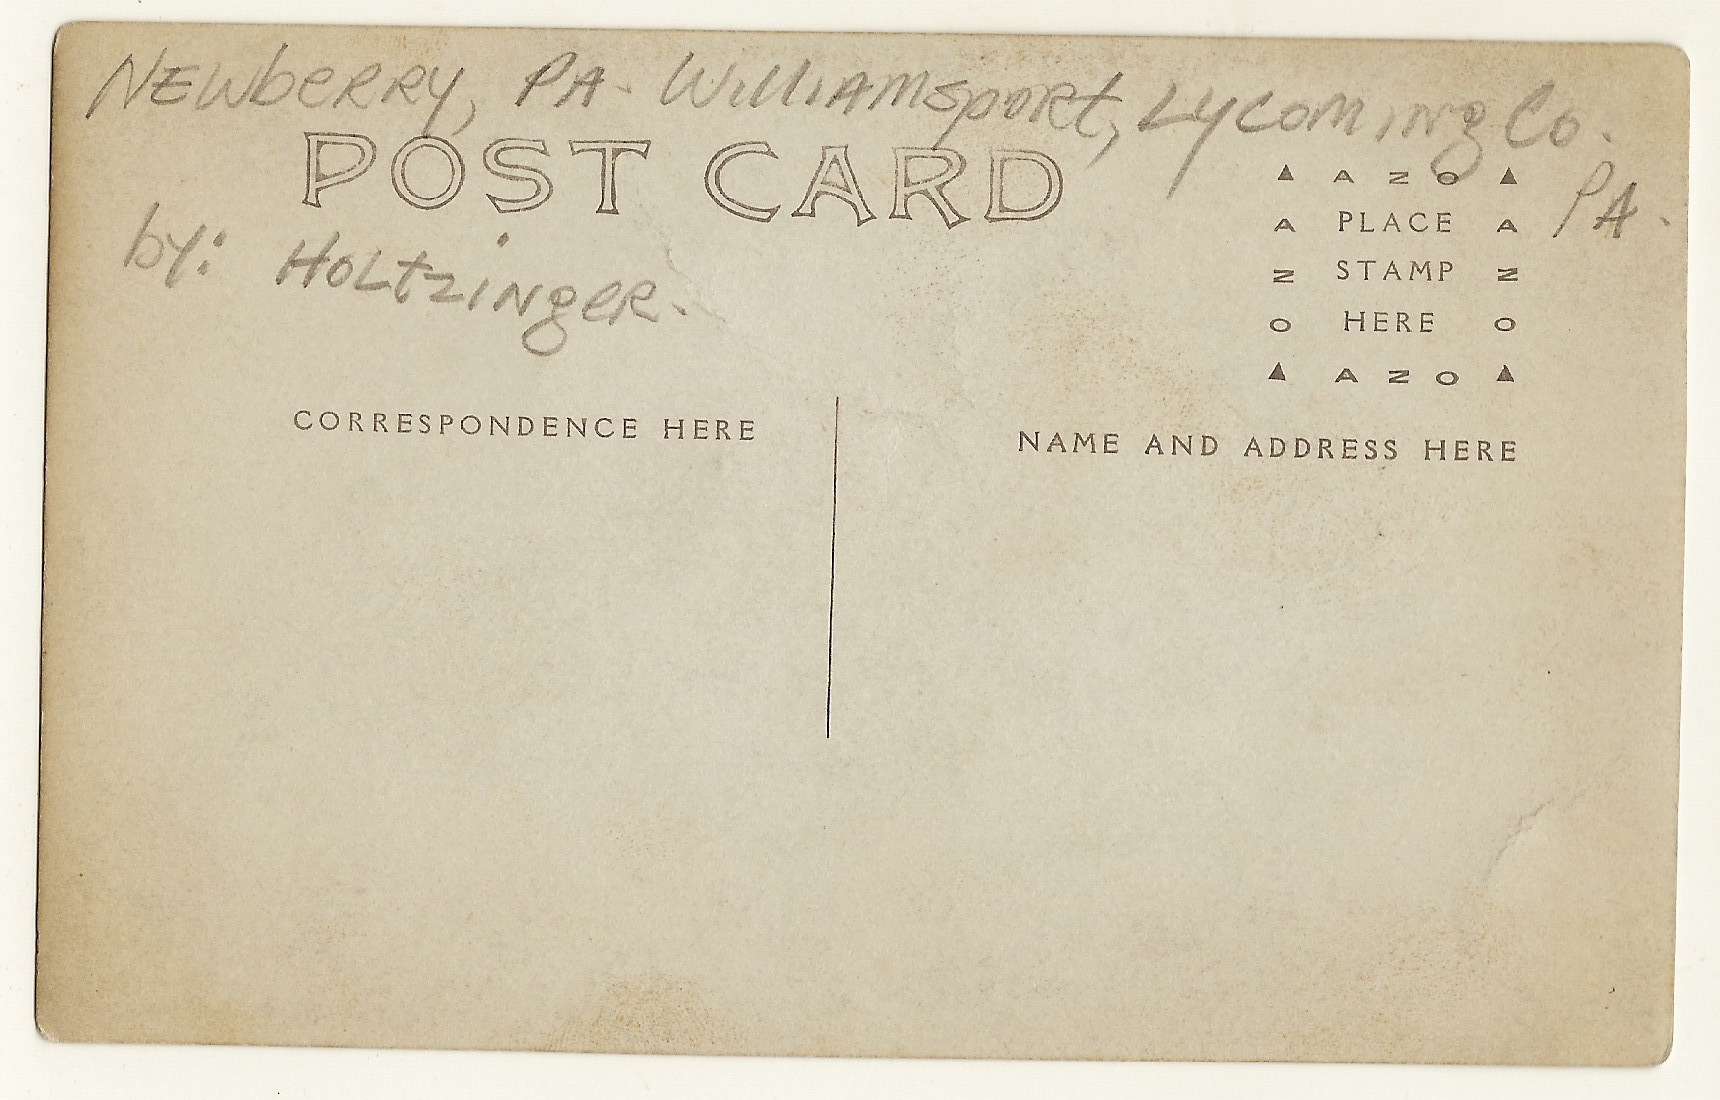 NEWbERRY, PA. WiLLiAMsport, LYCOMiNg Co.
PA.
POST CARD
by: HOLtziNgER.
▲ A Z O ▲
A PLACE A
Z STAMP Z
O HERE O
▲ A Z O ▲
CORRESPONDENCE HERE
NAME AND ADDRESS HERE